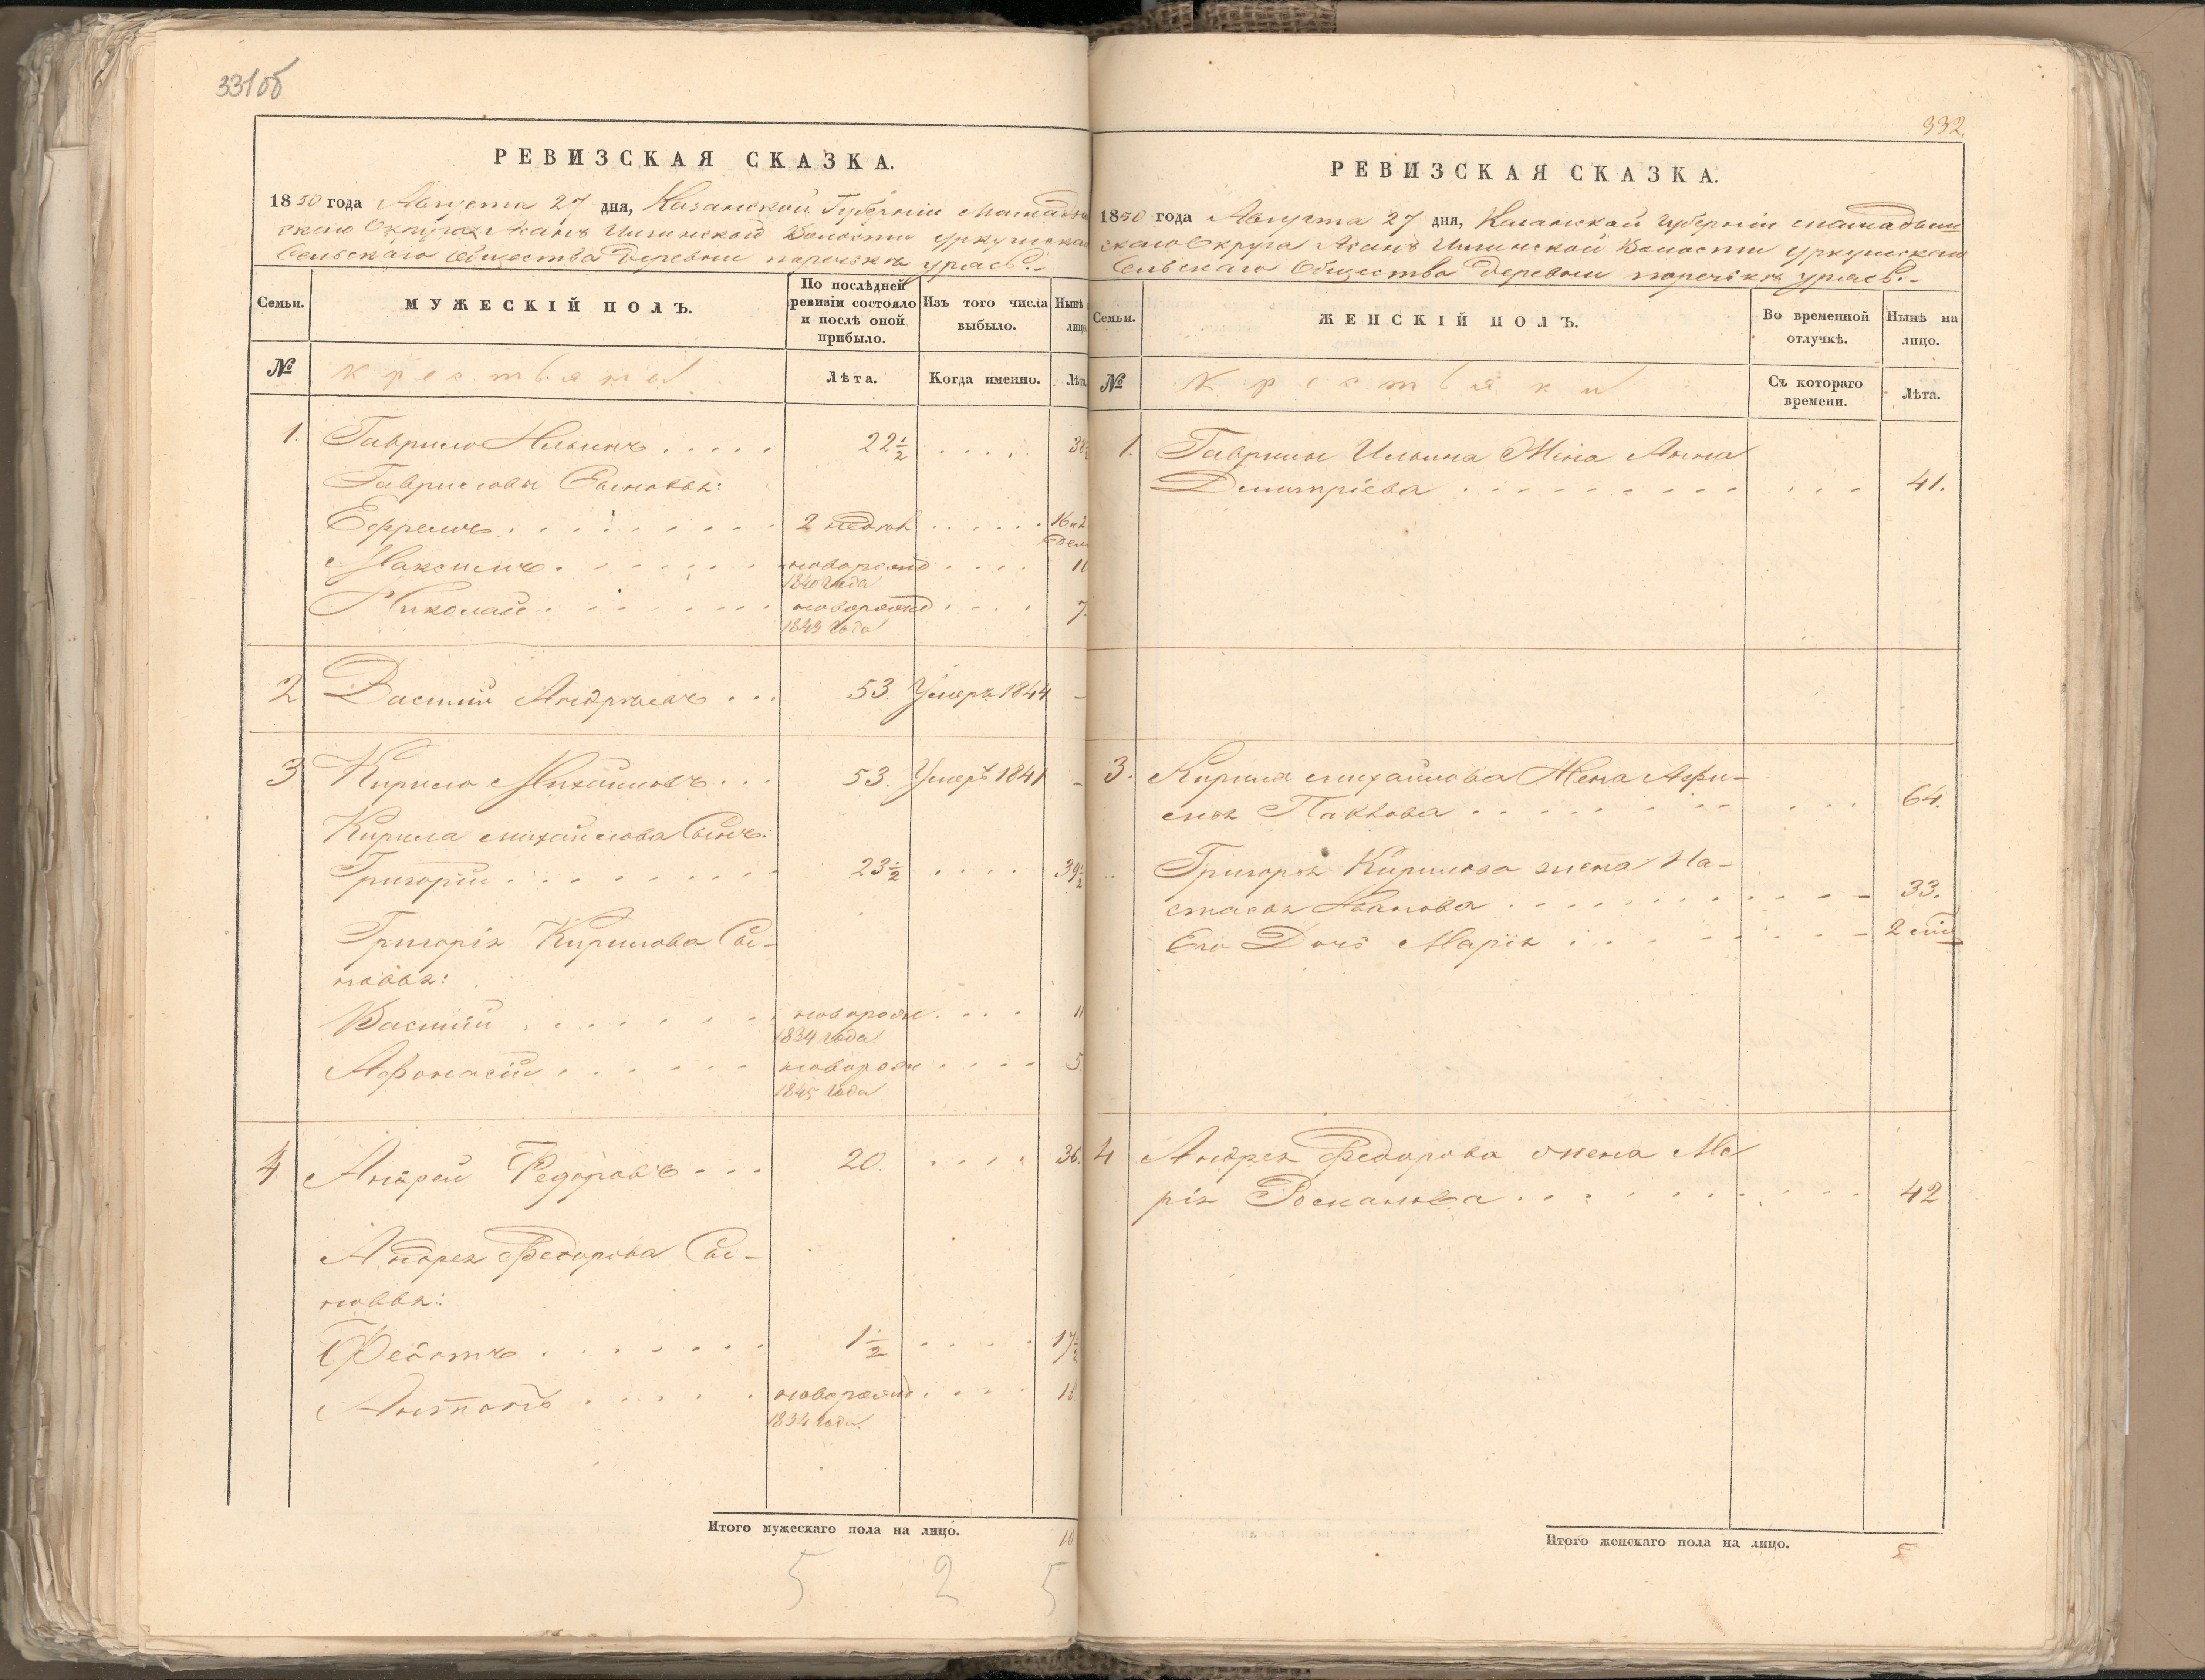 331об
РЕВИЗСКАЯ СКАЗКА.
1850 года Августа 27 дня, Казанской Губерніи Мамадыш
скаго Округа Асанъ Илгинской Волости Уркушскаго
Сельскаго Общества Деревни
Семьи.
МУЖЕСКІЙ ПОЛЪ.
По послѣдней ревизіи состояло и послѣ оной прибыло.
Изъ того числа выбыло.
Нынѣ лицо
№
Крестьяне
Лѣта.
Когда именно.
Лѣта
1. Гаврило Ильинъ . . . . . 22½ . . . . . 38½
Гавриловы Сыновья:
Ефремъ . . . . . . . 2 недѣл . . . . . 16 и 2 недел
Максимъ . . . . . . . новорожд . . . . 10
1840 года
Николай . . . . . . . новорожд . . . . 7.
1843 года
2 Василій Андреевъ . . . 53. Умеръ 1844 –
3 Кирило Михайловъ . . . 53. Умеръ 1841 –
Кирила Михайлова Сынъ:
Григорій . . . . . . . . 23½ . . . . 39½
Григорія Кирилова Сы-
новья:
Василій . . . . . . . новорож . . . . 11
1834 года
Афонасій . . . . . . новорож . . . . 5.
1845 года
4 Андрей Федоровъ . . . 20. . . . . 36.
Андрея Федорова Сы-
новья:
Федотъ . . . . . . . 1½ . . . . 17½
Антонъ . . . . . . новорожд . . . . 18
1834 года.
Итого мужескаго пола на лицо. 10
5 2 5
332.
РЕВИЗСКАЯ СКАЗКА.
1850 года Августа 27 дня, Казанской Губерніи Мамадыш
скаго Округа Асанъ Илгинской Волости Уркушскаго
Сельскаго Общества Деревни
Семьи.
ЖЕНСКІЙ ПОЛЪ.
Во временной отлучкѣ.
Нынѣ на лицо.
№
Крестьяни
Съ котораго времени.
Лѣта.
1. Гаврилы Ильина Жена Анна
Дмитріева . . . . . . . . . . . . 41.
3. Кирила Михайлова Жена Афи-
мья Павлова . . . . . . . . . . . 64.
Григорья Кирилова жена На-
стасья Иванова . . . . . . . . . . 33.
Его Дочь Марія . . . . . . . . 2
4 Андрея Федорова жена Ма
рія Романова . . . . . . . . . . 42
Итого женскаго пола на лицо. 5